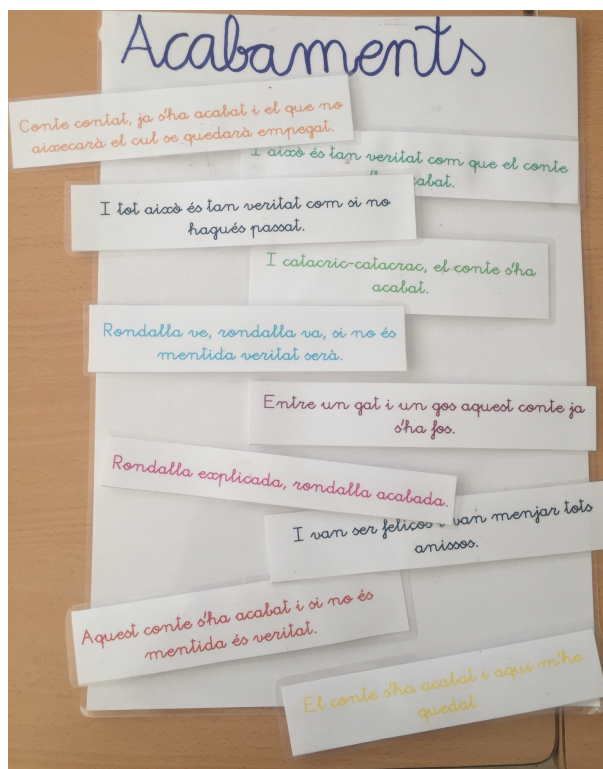 Acabaments
Conte contat, ja s'ha acabat i el que no
aixecarà el cul se quedarà empegat.
I això és tan veritat com que el conte
s'ha acabat.
I tot això és tan veritat com si no
hagués passat.
I catacric-catacrac, el conte s'ha
acabat.
Rondalla ve, rondalla va, si no és
mentida veritat serà.
Entre un gat i un gos aquest conte ja
s'ha fos.
Rondalla explicada, rondalla acabada.
I van ser feliços i van menjar tots
anissos.
Aquest conte s'ha acabat i si no és
mentida és veritat.
El conte s'ha acabat i aquí m'he
quedat